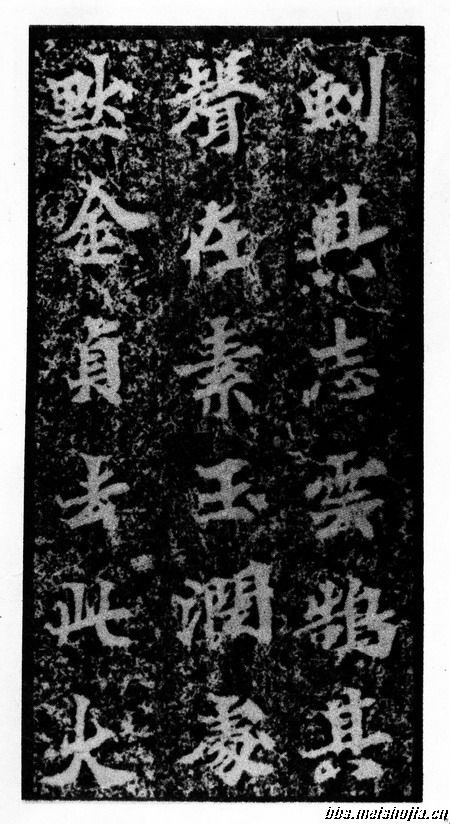 虯其志雲鵠其
聲在素玉潤處
默金貞去此火
bbs.meishujia.cn